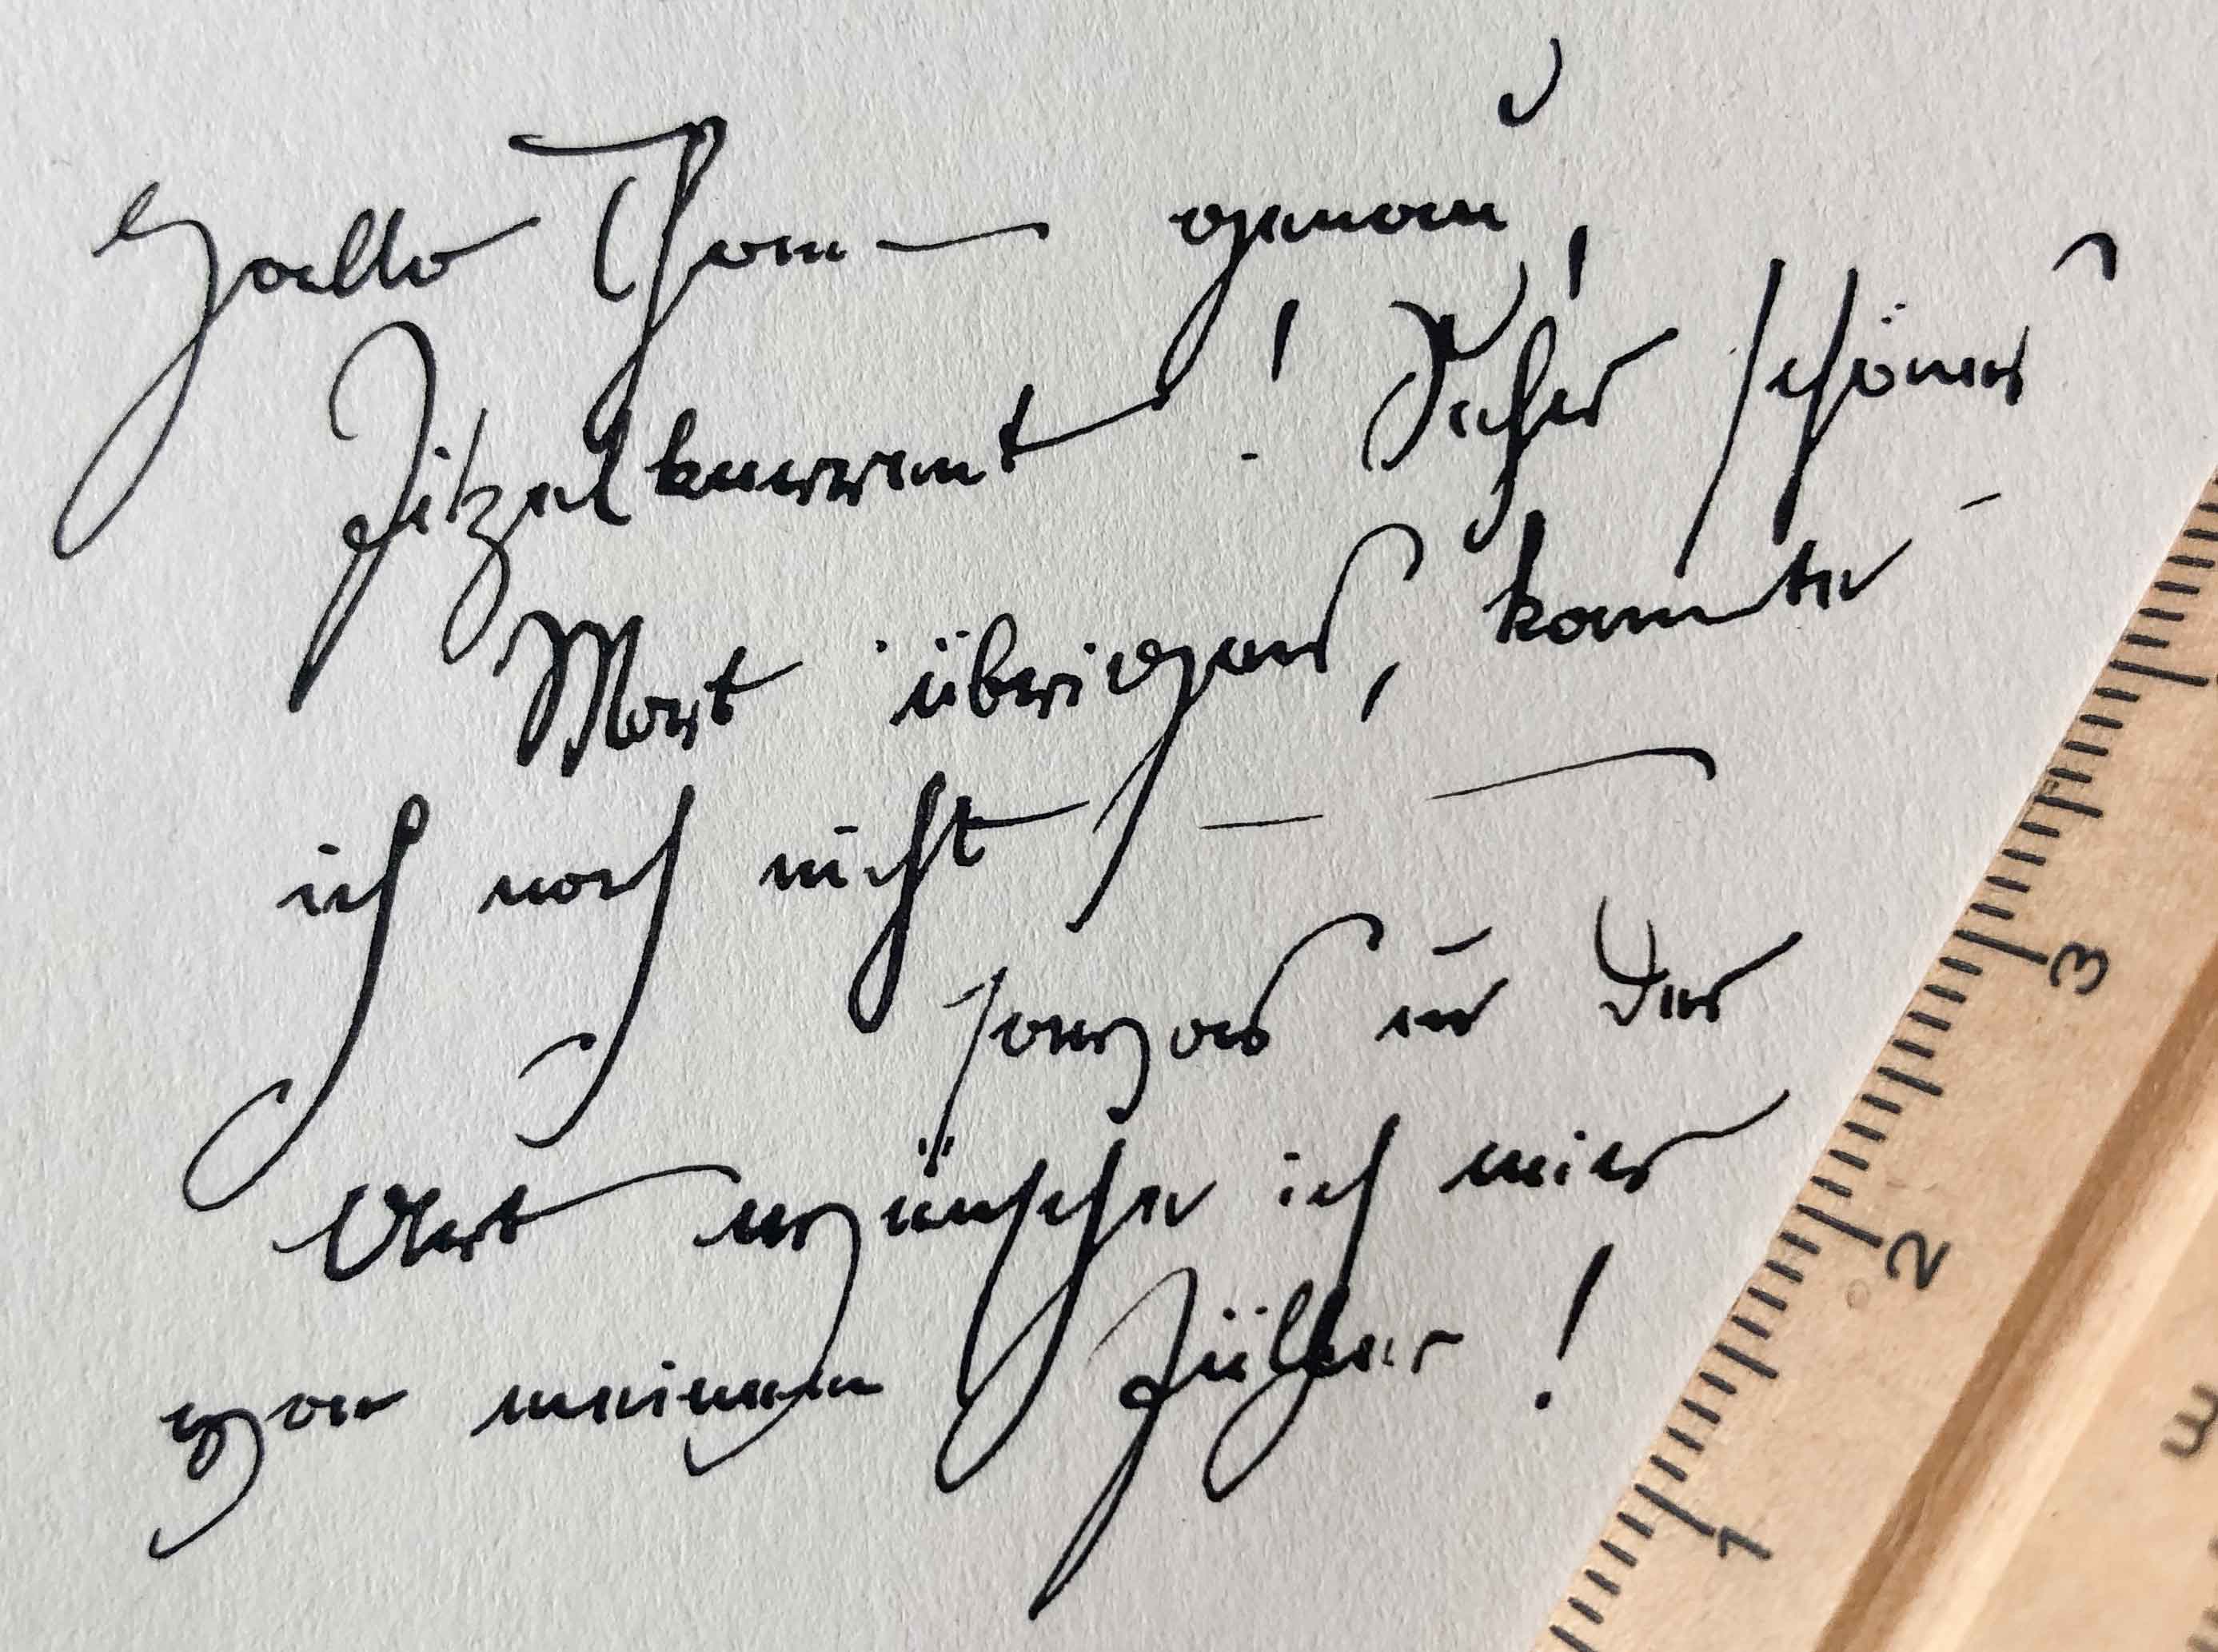 Hallo Thom — genau,
Fitzelkurrent! Sehr schönes
Wort übrigens, kannte
ich noch nicht —
sowas in der
Art wünsche ich mir
von meinem Füller!
3
2
1